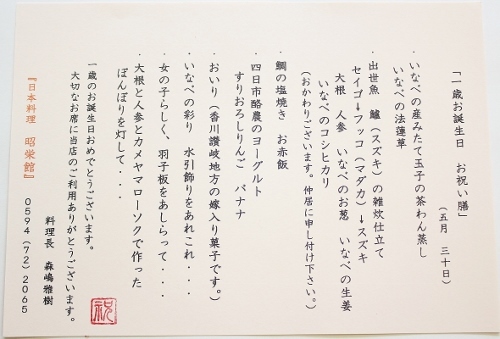 「一歳お誕生日　お祝い膳」
（五月　三十日）
・いなべの産みたて玉子の茶わん蒸し
いなべの法蓮草
・出世魚　鱸（スズキ）の雑炊仕立て
セイゴ→フッコ（マダカ）→スズキ
大根　人参　いなべのお葱　いなべの生姜
いなべのコシヒカリ
（おかわりございます。仲居に申し付け下さい。）
・鯛の塩焼き　お赤飯
・四日市酪農のヨーグルト
すりおろしりんご　バナナ
・おいり（香川讃岐地方の嫁入り菓子です。）
・いなべの彩り　水引飾りをあれこれ・・・
・女の子らしく、羽子板をあしらって・・・
・大根と人参とカメヤマローソクで作った
ぼんぼりを灯して・・・
一歳のお誕生日おめでとうございます。
大切なお席に当店のご利用ありがとうございます。
料理長　森嶋雅樹
『日本料理　昭栄館』　０５９４（７２）２０６５
祝